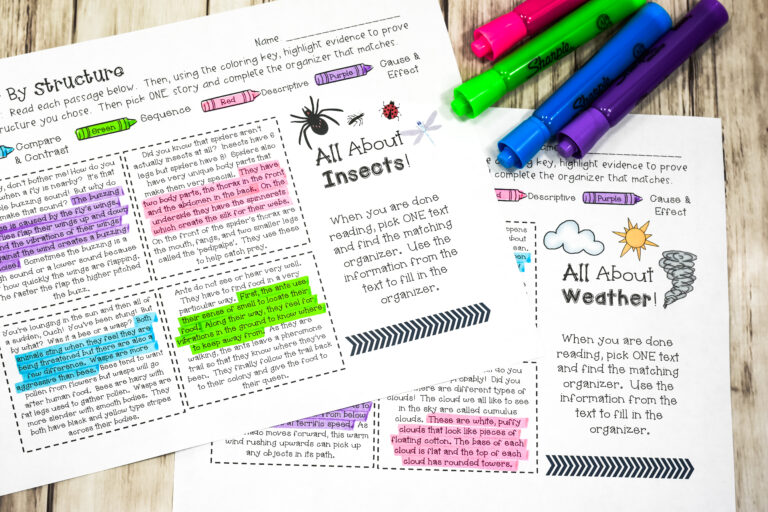 Name
By Structure
Read each passage below. Then, using the coloring key, highlight evidence to prove
structure you chose. Then pick ONE story and complete the organizer that matches.
Compare
& Contrast
Green
Sequence
Red
Descriptive
Purple
Cause &
Effect
don't bother me! How do you
when a fly is nearby? It's that
make that sound? The buzzing
is caused by the fly's wings.
flap their wings up and down
and the vibrations of their wings
against the wind creates a buzzing
noise! Sometimes the buzzing is a
high sound or a lower sound because
how quickly the wings are flapping.
The faster the flap the higher pitched
the buzzing.
Did you know that spiders aren't
actually insects at all? Insects have 6
legs but spiders have 8! Spiders also
have very unique body parts that
make them very special. They have
two body parts, the thorax in the front
and the abdomen in the back. On the
underside they have the spinnerets
which create the silk for their webs.
On the front of the spider's thorax are
the mouth, fangs, and two smaller legs
called the 'pedipalps'. They use these
to help catch prey.
You're lounging in the sun and then all of
a sudden, Ouch! You've been stung! But
by what? Was it a bee or a wasp? Both
animals sting when they feel they are
being threatened but there are also a
few difference. Wasps are more
aggressive than bees. Bees tend to want
pollen from flowers but wasps will go
after human food. Bees are hairy with
fat legs used to gather pollen. Wasps are
more slender with smooth bodies. They
both have black and yellow type stripes
across their bodies.
Ants do not see or hear very well.
They have to find food in a very
particular way. First, the ants use
their sense of smell to locate their
food! Along their way, they feel for
vibrations in the ground to know where
to keep away from. As they are
walking, the ants leave a pheromone
trail so that they know where they've
been. They finally follow the trail back
to their colony and give the food to
their queen.
All About
Insects!
When you are done
reading, pick ONE text
and find the matching
organizer. Use the
information from the
text to fill in the
organizer.
Sharpie
coloring key, highlight evidence to prove
complete the organizer that matches.
Descriptive
Purple
Cause &
Effect
All About
Weather!
When you are done
reading, pick ONE text
and find the matching
organizer. Use the
information from the
text to fill in the
organizer.
from below
at terrific speed. As
moves forward, this warm
wind rushing upwards can pick up
any objects in its path.
probably! Did you
there are different types of
clouds? The cloud we all like to see
in the sky are called cumulus
clouds. These are white, puffy
clouds that look like pieces of
floating cotton. The base of each
cloud is flat and the top of each
cloud has rounded towers.